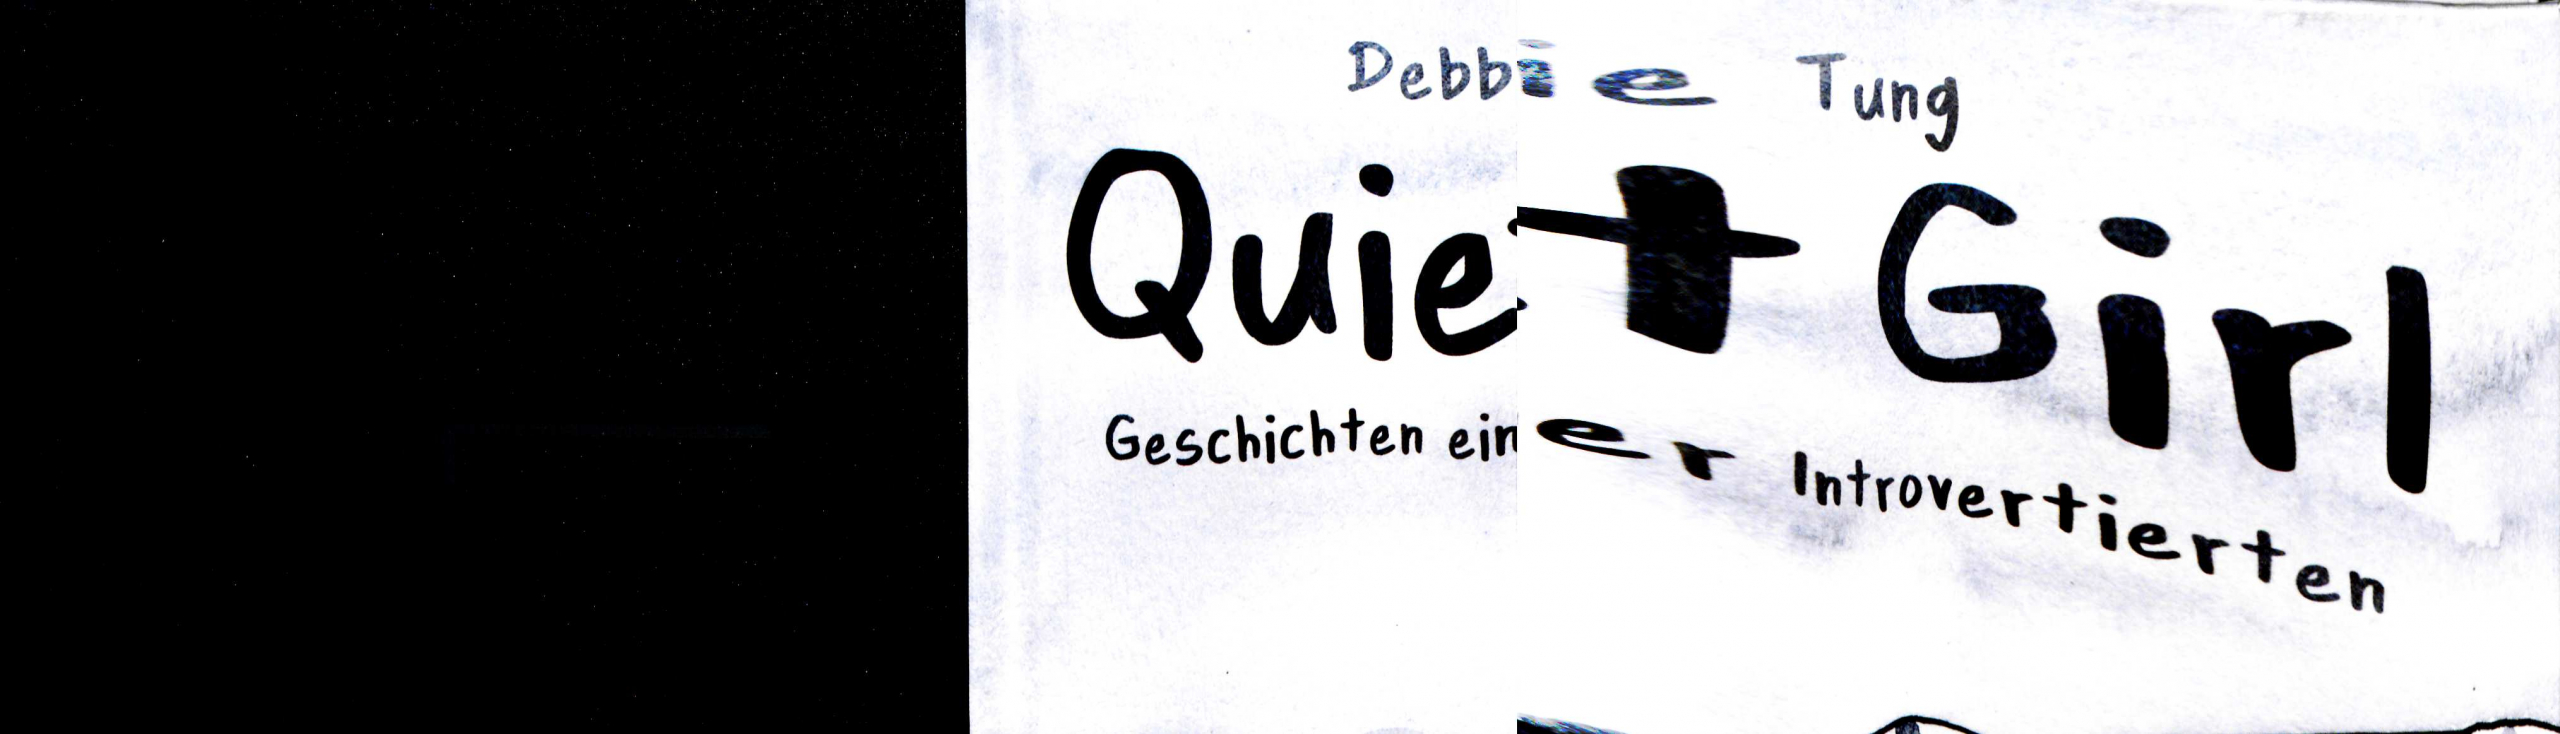 Debbie Tung
Quiet Girl
Geschichten einer Introvertierten